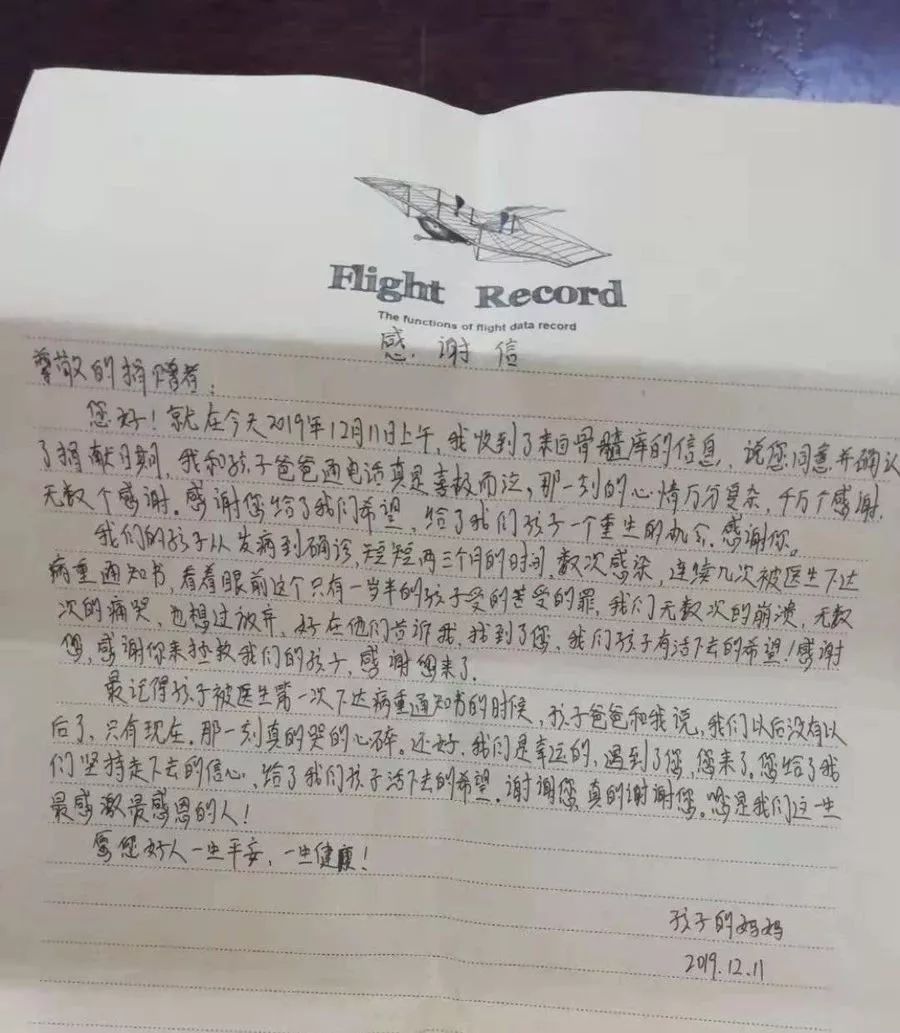 Flight Record
The functions of flight data record
感谢信
尊敬的捐赠者：
您好！就在今天2019年12月11日上午，我收到了来自骨髓库的信息，说您同意并确认
了捐献日期，我和孩子爸爸通电话真是喜极而泣，那一刻的心情万分复杂，千万个感谢，
无数个感谢。感谢您给了我们希望，给了我们孩子一个重生的机会。感谢你。
我们的孩子从发病到确诊，短短两三个月的时间，数次感染，连续几次被医生下达
病重通知书，看着眼前这个只有一岁半的孩子受的苦受的罪，我们无数次的崩溃，无数
次的痛哭，也想过放弃，好在他们告诉我，找到了您，我们孩子有活下去的希望！感谢
您，感谢你来拯救我们的孩子，感谢您来了。
最记得孩子被医生第一次下达病重通知书的时候，孩子爸爸和我说，我们以后没有以
后了，只有现在。那一刻真的哭的心碎。还好，我们是幸运的，遇到了您，您来了。您给了我
们坚持走下去的信心，给了我们孩子活下去的希望。谢谢您，真的谢谢您。您是我们这一生
最感激最感恩的人！
愿您好人一生平安，一生健康！
孩子的妈妈
2019.12.11